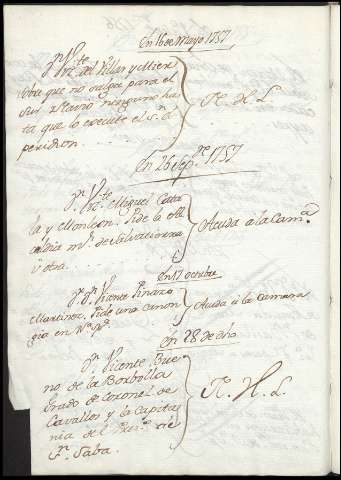 En 16 de Mayo 1757
Dn Vte del Villar y Mier
Obra que no salga para el
sur Navio ninguno has
ta que lo execute el Sn A
peridon
N. H. L.
En 26 Sepre 1757
Dn Vte Miguel Cata
la y Monleon. Pide la Al
caldia mr de Salvatierra
u otra
Acuda a la Camª
En 17 octubre
Dn Vicente Pinazo
Martinez. Pide una Canon
gia en
Acuda á la Camara
En 28 de dho
Dn Vicente Bue
no de la Borbolla
Grado de Coronel de
Cavallos y la Capita
nia del
Saba
N. H. L.